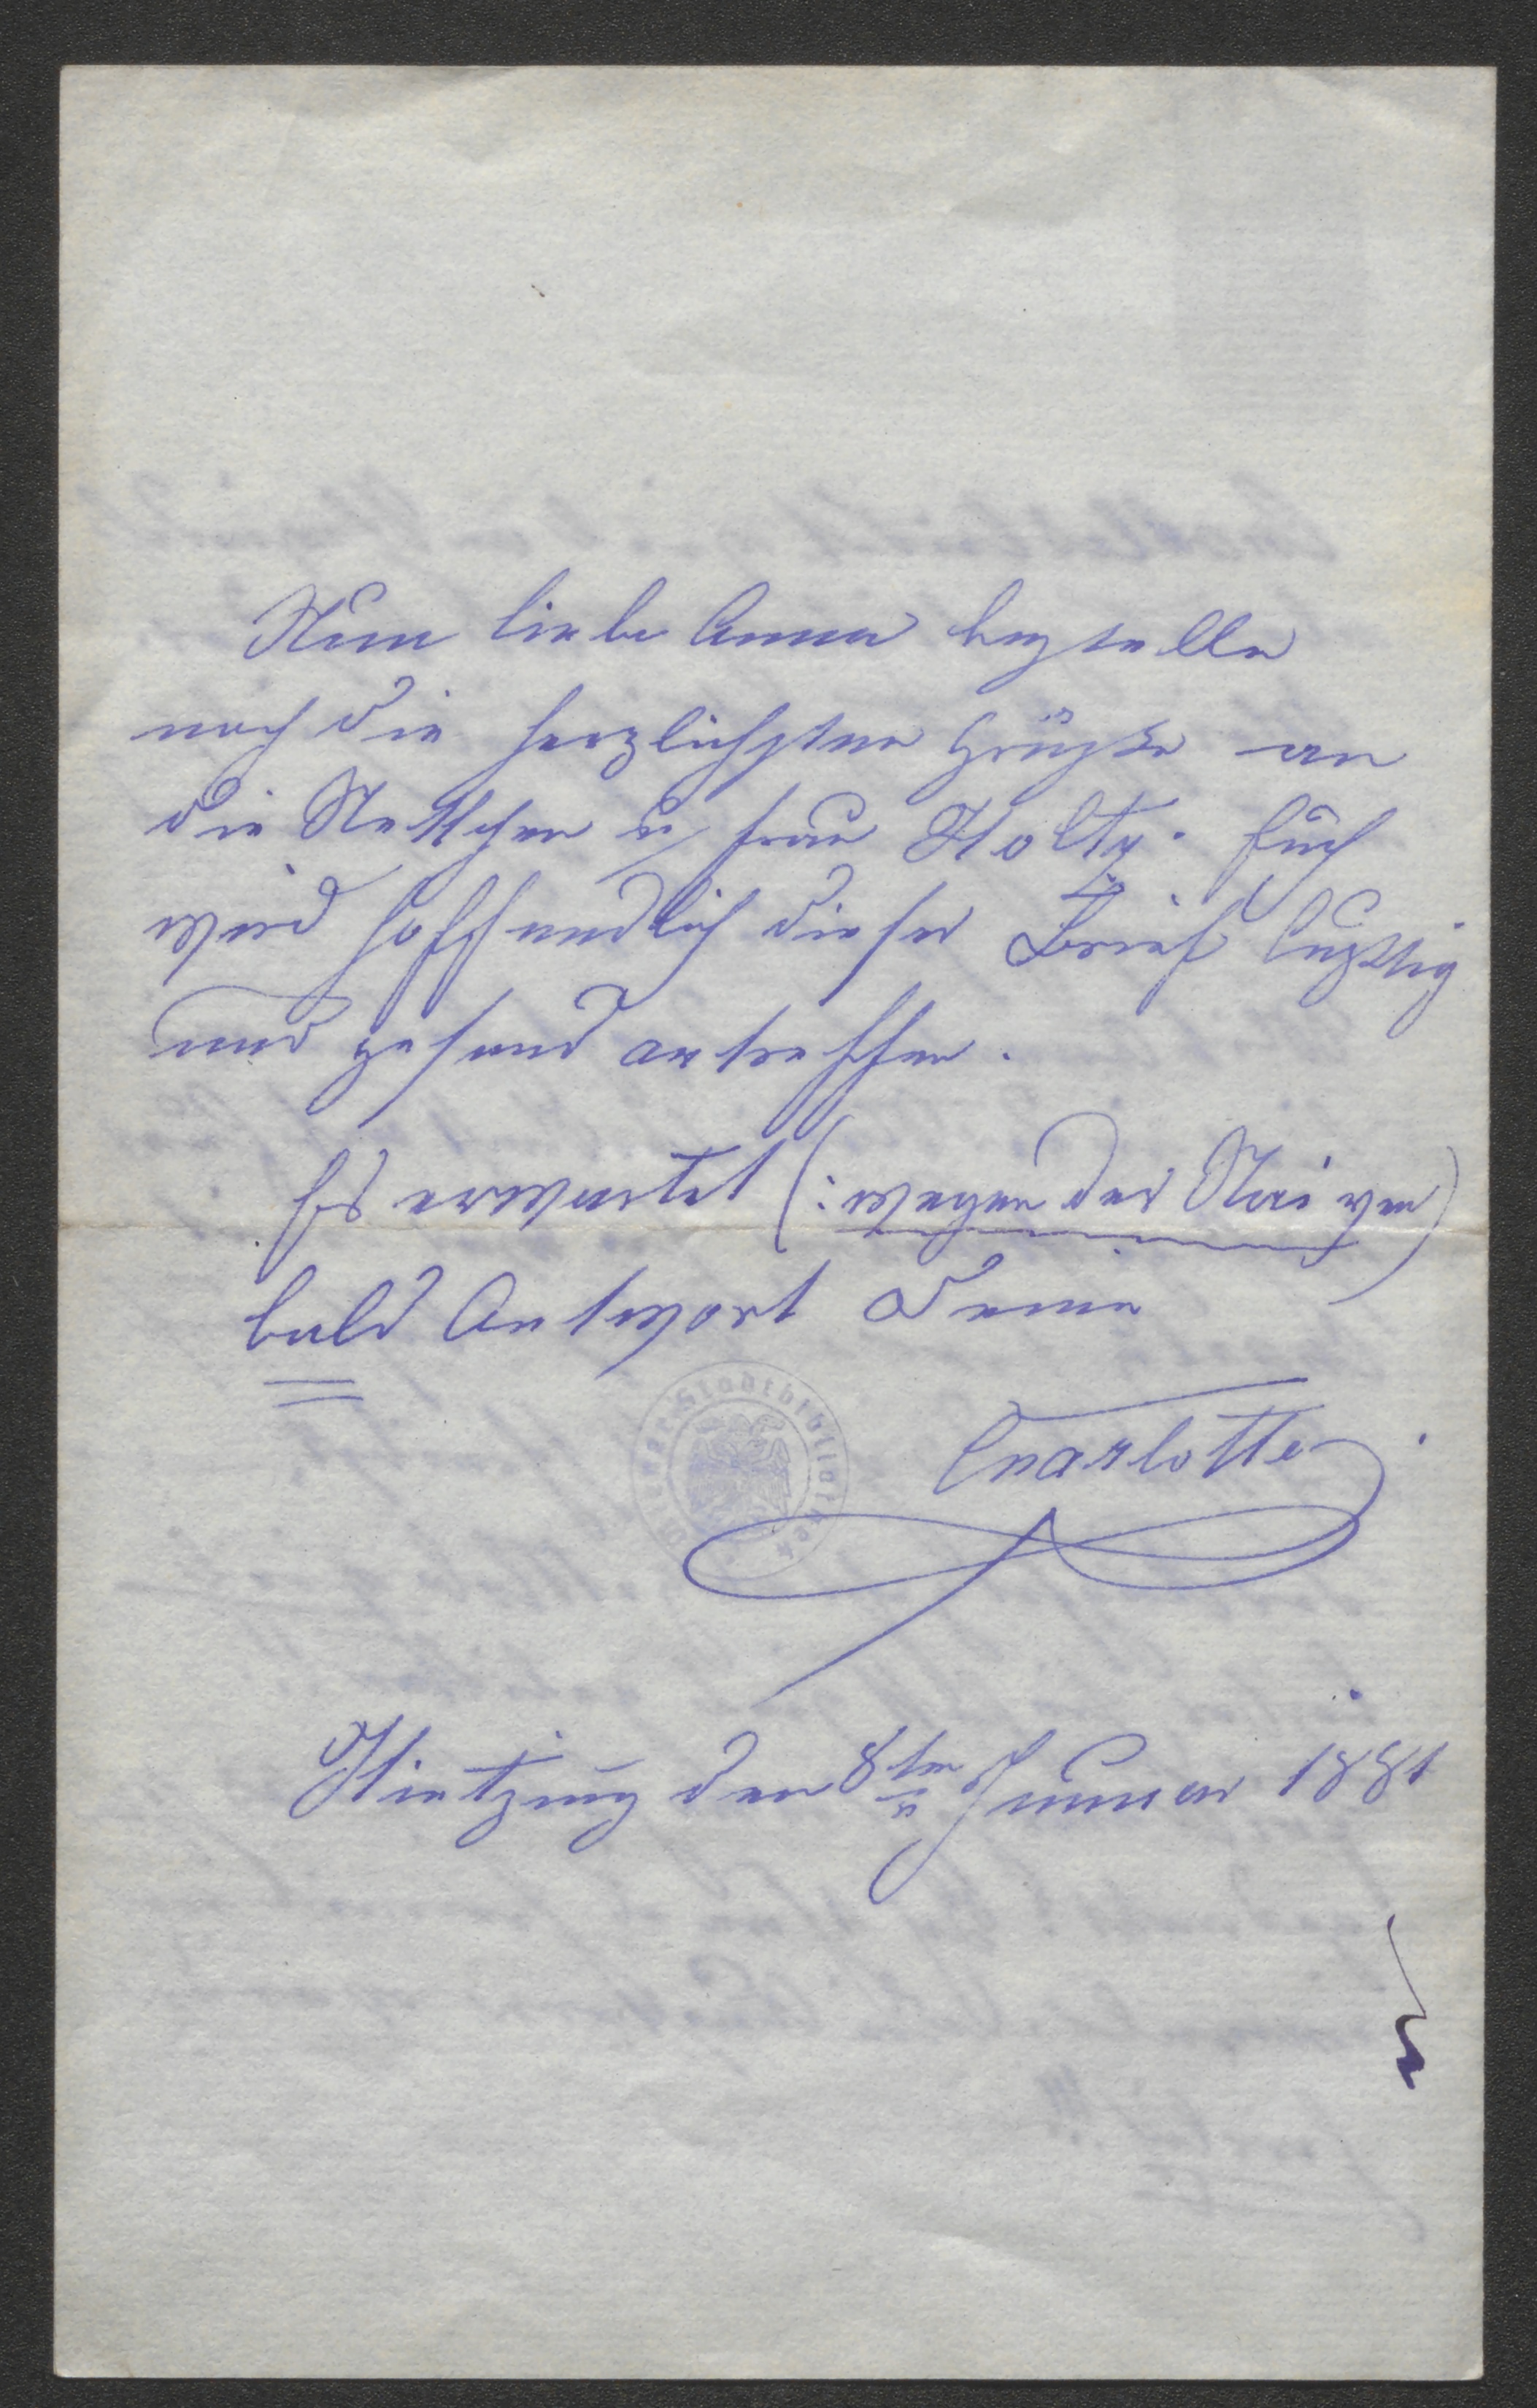 Nun liebe Anna bestelle
noch die herzlichsten Grüße an
die Nettchen u Frau Holty. Euch
wird hoffendlich dieser Brief lustig
und gesund antreffen.
Es erwartet (: wegen der Naiven)
bald Antwort Deine
Charlotte
Wiener Stadtbibliothek
Hietzing den 8ten Januar 1881